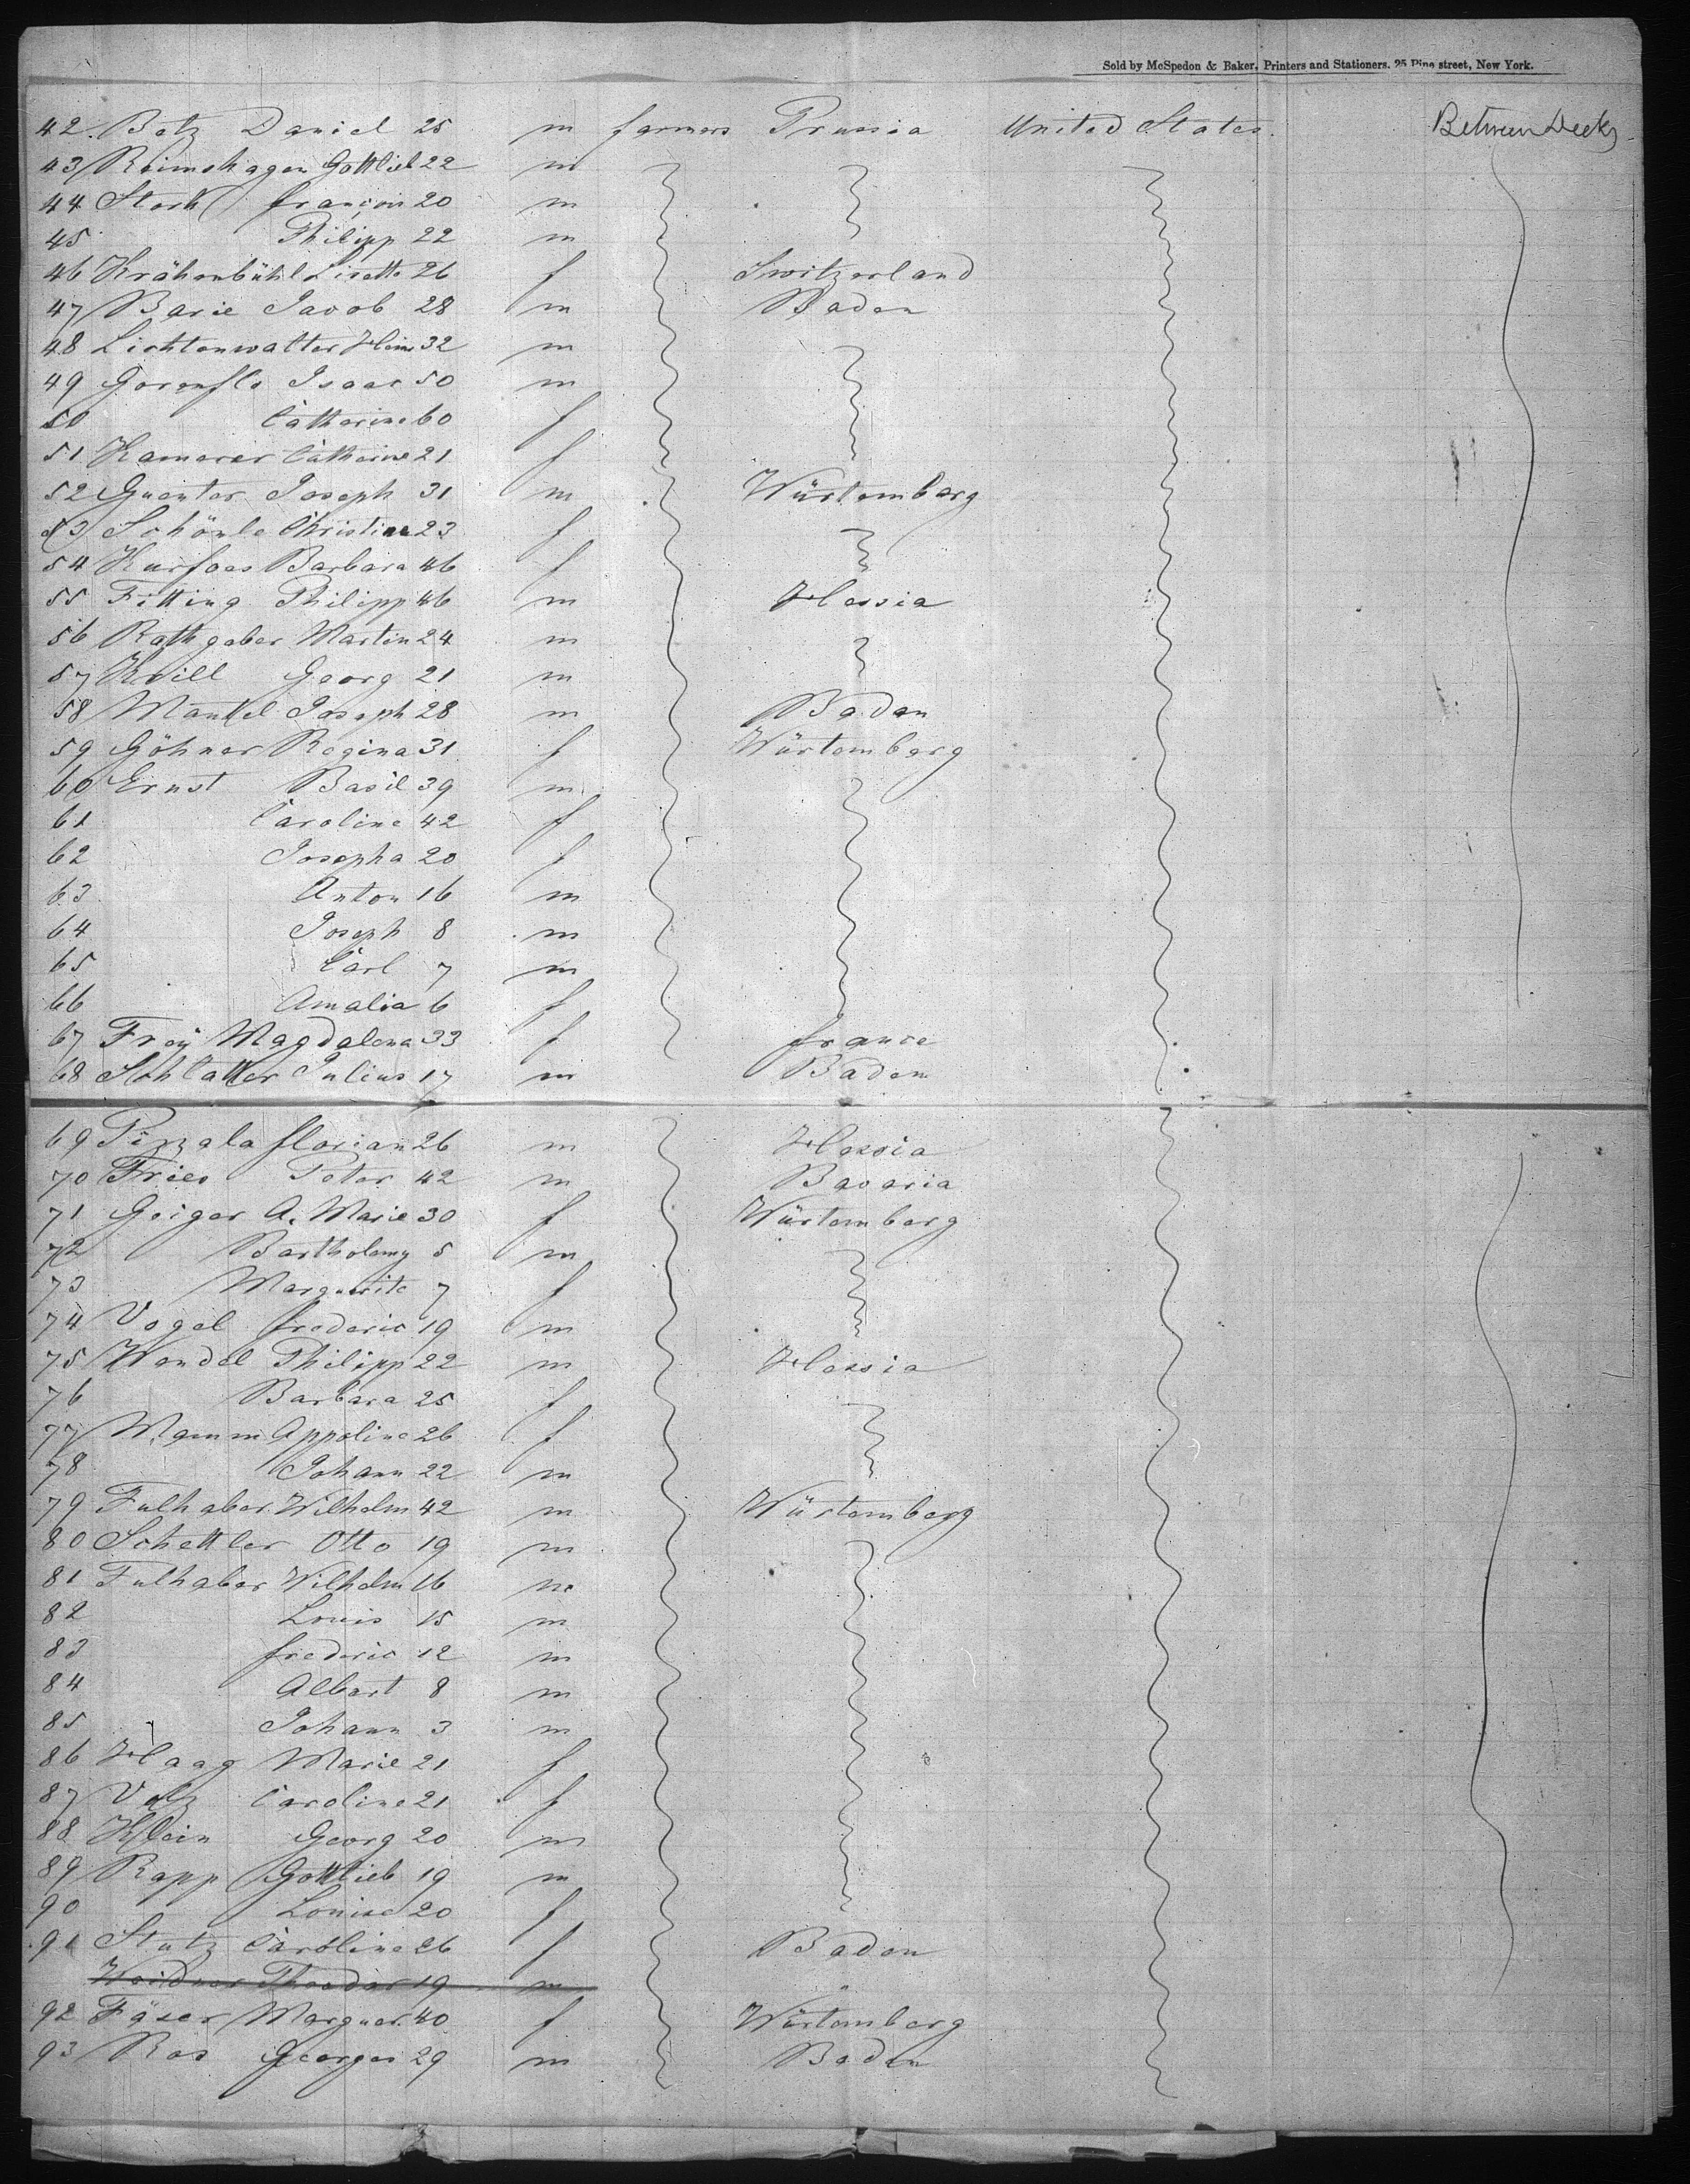 Sold by McSpedon & Baker, Printers and Stationers. 25 Pine street, New York.
42. Betz Daniel 25 m farmers Prussia United States. Between Decks
43 Reimshagen Gottlieb 22 m
44 Stork françois 20 m
45 Philipp 22 m
46 Krähenbühl Lisette 26 f Switzerland
47 Barie Jacob 28 m Baden
48 Lichtenwalter Heinr 32 m
49 Gorenflo Isaac 50 m
50 Catherine 60 f
51 Kamerer Catherine 21 f
52 Guenter Joseph 31 m Würtemberg
53 Schönle Christine 23 f
54 Kurfaes Barbara 46 f
55 Fitting Philipp 46 m Hessia
56 Rathgeber Martin 24 m
57 Georg 21 m
58 Mantel Joseph 28 m Baden
59 Göhner Regina 31 f Würtemberg
60 Ernst Basil 39 m
61 Caroline 42 f
62 Josepha 20 f
63 Anton 16 m
64 Joseph 8 m
65 Carl 7 m
66 Amalia 6 f
67 Frey Magdalena 33 f france
68 Schlatter Julius 17 m Baden
69 florian 26 m Hessia
70 Fries Peter 42 m Bavaria
71 Geiger A. Marie 30 f Würtemberg
72 Bartholemy 5 m
73 Marguerite 7 f
74 Vogel frederic 19 m
75 Wendel Philipp 22 m Hessia
76 Barbara 25 f
77 Mamm Appoline 26 f
78 Johann 22 m
79 Fulhaber Wilhelm 42 m Würtemberg
80 Schettler Otto 19 m
81 Fulhaber Wilhelm 16 m
82 Louis 15 m
83 frederic 12 m
84 Albert 8 m
85 Johann 3 m
86 Haag Marie 21 f
87 Volz Caroline 21 f
88 Klein Georg 20 m
89 Rapp Gottlieb 19 m
90 Louise 20 f
91 Stutz Caroline 26 f Baden
Weidner Theodor 19 m "
92 Fäser Marguer. 40 f Würtemberg
93 Ros Georges 29 m Baden